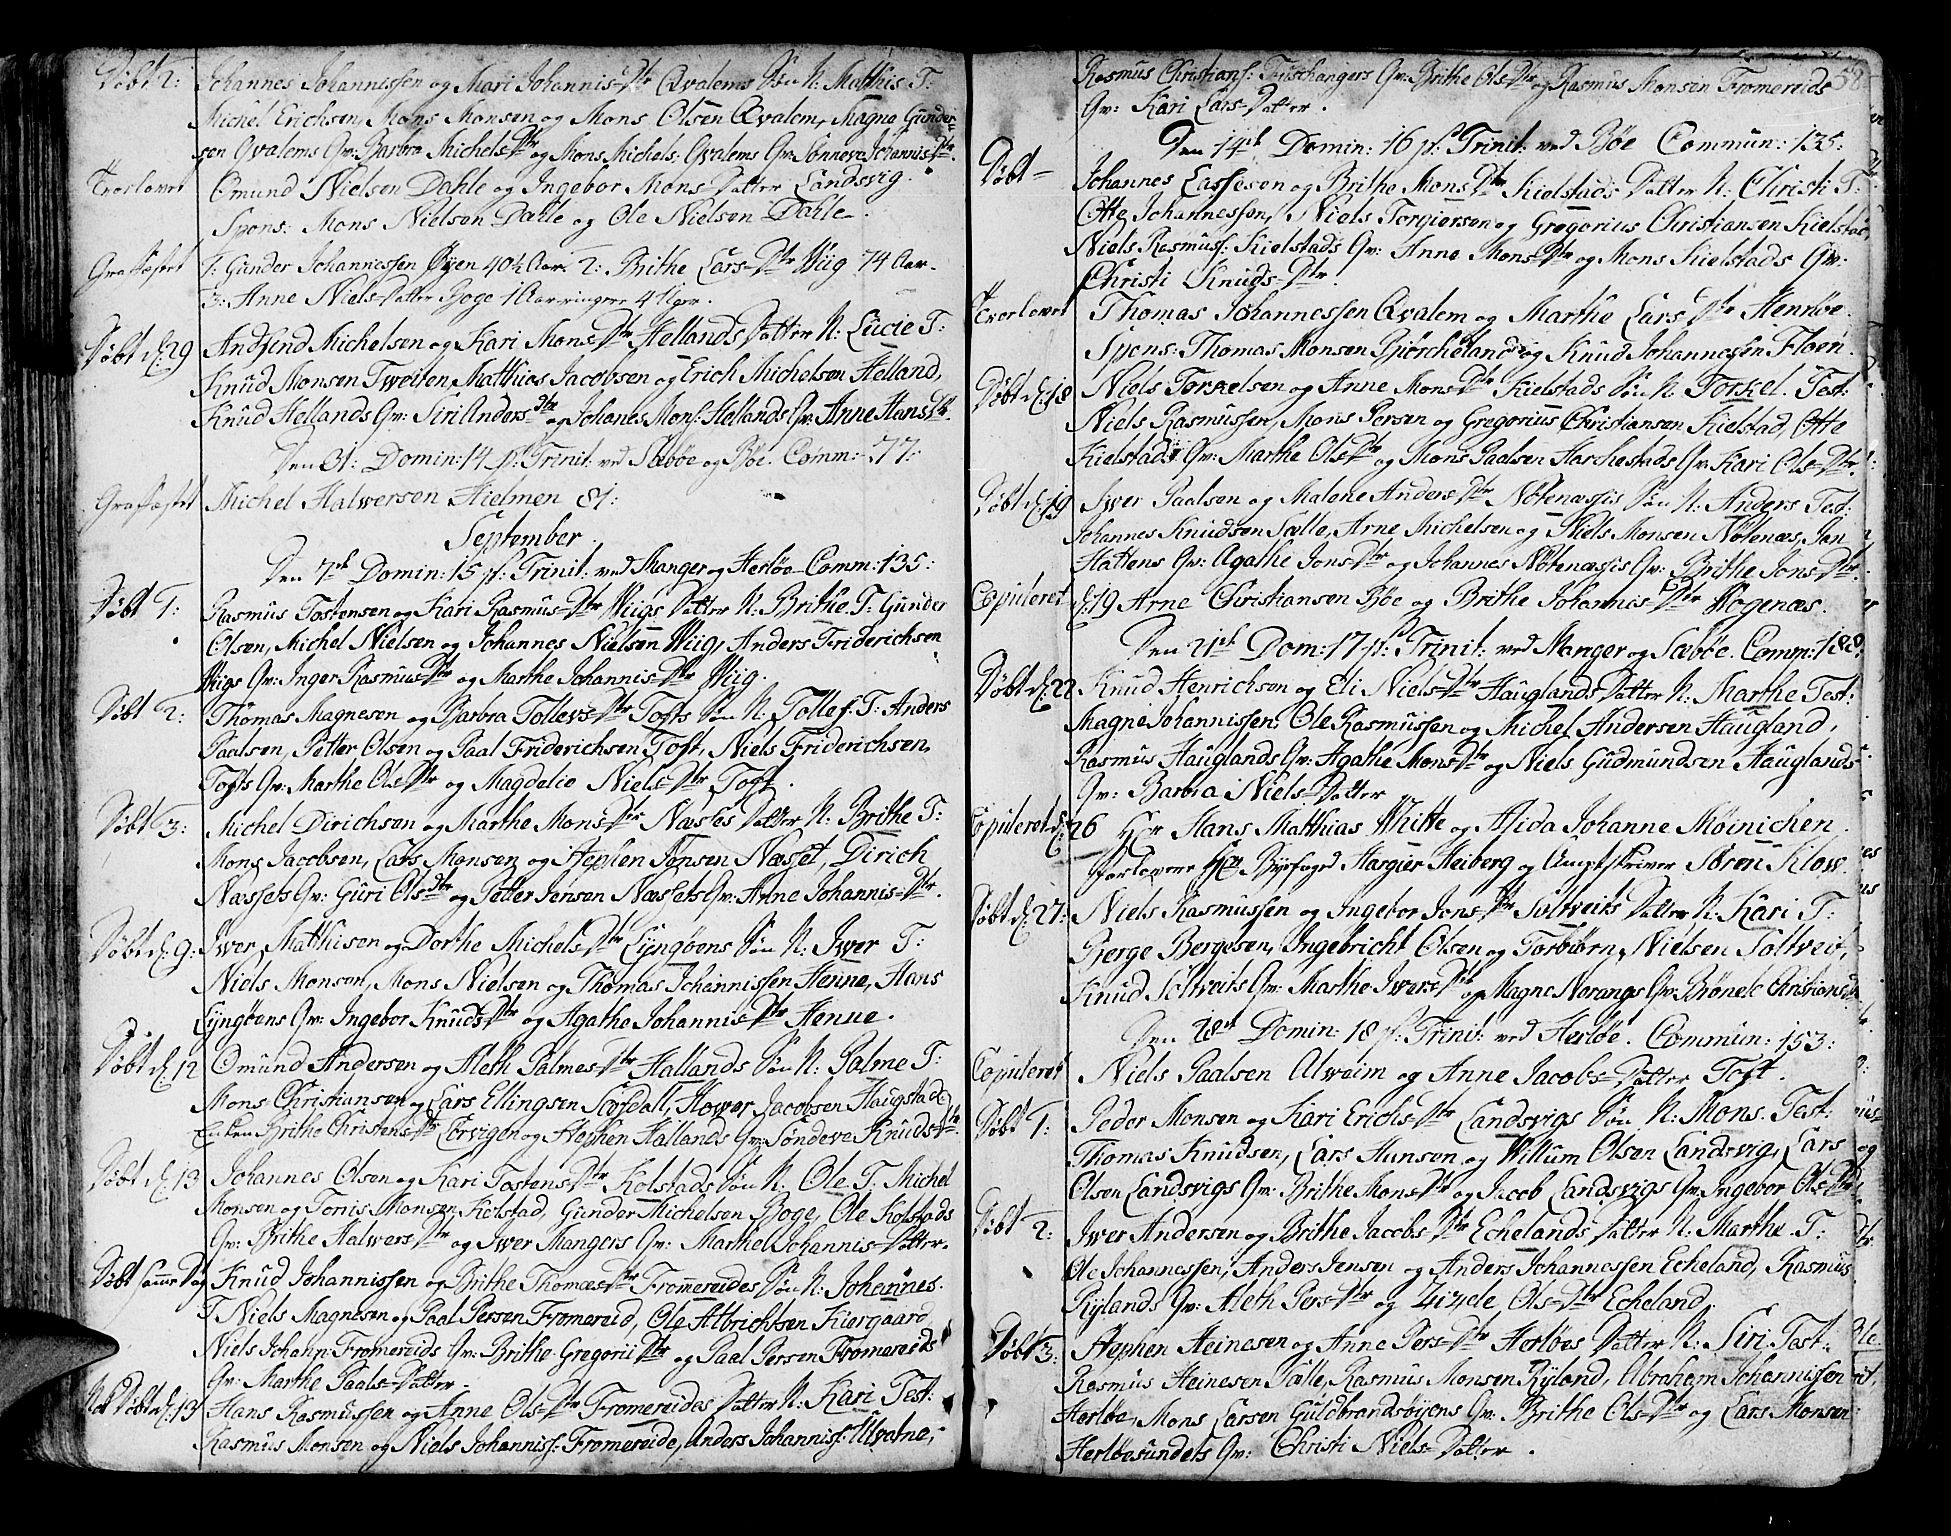 Döbt 2: Johannes Johannissen og Mari Johannis-Dtr Qvalems Sön N: Matthis T:
Michel Erichsen, Mons Monsen og Mons Olsen Qvalem, Magne Gunder-
sen Qvalems Qv: Barbra Michels-Dtr og Mons Michels: Qvalems Qv: Sönneva Johannis-Dtr.
Trorlovet Omund Nielsen Dahle og Ingebor Mons-Datter Landsvig.
Spons: Mons Nielsen Dahle og Ole Nielsen Dahle.
Graffæstet 1: Gunder Johannessen Öyen 40½ Aar. 2: Brithe Lars-Dtr Wiig 74 Aar.
3: Anne Niels-Datter Boge 1 Aar ringere 4 Uger.
Döbt d: 29 Andfind Michelsen og Kari Mons-Dtr Hellands Datter N: Lucie T:
Knud Monsen Tweiten, Matthias Jacobsen og Erich Michelsen Helland,
Knud Hellands Qv: Siri Anders-Dtr og Johanes Mons: Hellands Qv: Anne Hans Dtr.
Den 31: Domin: 14 p: Trinit: ved Sæböe og Böe. Comm: 77:
Graffæstet Michel Halwersen Hielmen 81:
September.
Den 7de Domin: 15 p: Trinit: ved Manger og Herlöe Comm: 135:
Döbt 1: Rasmus Tostensen og Kari Rasmus-Dtr Wiigs Datter N: Brithe T: Gunder
Olsen, Michel Nielsen og Johannes Nielsen Wiig, Anders Friderichsen
Wiigs Qv: Inger Rasmus-Dtr og Marthe Johannis-Dtr Wiig.
Döbt 2: Thomas Magnesen og Barbra Tollevs-Dtr Tofts Sön N: Tollef. T: Anders
Paalsen, Petter Olsen og Paal Friderichsen Toft, Niels Friderichsen
Tofts Qv: Marthe Ols-Dtr og Magdelie Niels-Dtr Toft.
Döbt 3: Michel Dirichsen og Marthe Mons-Dtr Næsses Datter N: Brithe T:
Mons Jacobsen, Lars Monsen og Stephen Jensen Næsset, Dirich
Næssets Qv: Guri Ols-Dtr og Petter Jensen Næssets Qv: Anne Johannis-Dtr.
Döbt d: 9: Iwer Matthisen og Dorthe Michels-Dtr Lyngöens Sön N: Iwer T:
Niels Monson, Mons Nielsen og Thomas Johannissen Henne, Hans
Lyngöens Qv: Ingebor Knuds-Dtr og Agathe Johannis-Dtr Henne.
Döbt d: 12 Omund Andersen og Aleth Palmes-Dtr Hallands Sön N: Palme T:
Mons Christiansen og Lars Ellingsen, Hower Jacobsen Haugstad,
Enken Brithe Christens-Dtr og Stephen Hallands Qv: Söndeva Knuds-Dtr.
Döbt d: 13 Johannes Olsen og Kari Tostens-Dtr Kolstads Sön N: Ole T. Michel
Monsen og Tonis Monsen Kolstad, Gunder Michelsen Boge, Ole Kolstads
Qv: Brithe Halwers-Dtr og Iwer Mangers Qv: Marthe Johannis-Datter.
Döbt samme Dag Knud Johannissen og Brithe Thomæs-Dtr Fromereides Sön N: Johannes.
T Niels Magnesen og Paal Persen Fromereid, Ole Albrichtsen Kiergaard
Niels Johan: Fromereids Qv: Brithe Gregorii Dtr og Paal Persen Fromereids
Qv: Marthe Paals-Datter.
Nok Döbt d: 13 Hans Rasmussen og Anne Ols-Dtr Fromereides Datter N: Kari Test:
Rasmus Monsen og Niels Johanniss: Fromereide, Anders Johanniss: Utvatne,
58.
Rasmus Christians: Qv: Brithe Ols-Dtr og Rasmus Monsen Fromereids
Qv: Kari Lars-Datter.
Den 14de Domin: 16 p: Trinit: ved Böe Commun: 135:
Döbt Johannes Lassesen og Brithe Mons-Dtr Kielstads Datter N: Christi T:
Otte Johannessen, Niels Torgiersen og Gregorius Christiansen Kielstad,
Niels Rasmuss: Kielstads Qv: Anne Mons-Dtr og Mons Kielstads Qv:
Christi Knuds-Dtr.
Trorlovet Thomas Johannessen Qvalem og Marthe Lars Dtr Henröe.
Spons: Thomas Monsen Björcheland og Knud Johannessen Floen.
Döbt d: 18 Niels Torkelsen og Anne Mons-Dtr Kielstads Sön N. Torkel. Test:
Niels Rasmussen, Mons Persen og Gregorius Christiansen Kielstad, Otte
Kielstads Qv: Marthe Ols-Dtr og Mons Paalsen Harchestads Qv: Kari Ols-Dtr.
Döbt d: 19 Iwer Paalsen og Malene Anders-Dtr Nötenæssis Sön N: Anders Test:
Johannes Knudsen Sælle, Arne Michelsen og Niels Monsen Nötenæs, Jan
Hattens Qv: Agathe Jons-Dtr og Johannes Nötenæssis Qv: Brithe Jons-Dtr.
Copuleret d: 19 Arne Christiansen Böe og Brithe Johannis-Dtr Wogenæs.
Den 21de Dom: 17 p: Trinit: ved Manger og Sæböe. Comm: 188:
Döbt d: 22 Knud Henrichsen og Eli Niels-Dtr Hauglands Datter N: Marthe Test:
Magne Johannissen, Ole Rasmussen og Michel Andersen Haugland,
Rasmus Hauglands Qv: Agathe Mons-Dtr og Niels Gudmundsen Hauglands
Qv: Barbra Niels-Datter
Copuleret d: 26 Hr Hans Matthias Witte og Johanne Möinichen.
Forlovere Hr Byefoged Hargier Heiberg og Amptskriver Sören Klow.
Döbt d: 27: Niels Rasmussen og Ingebor Jons-Dtr Soltveits Datter N: Kari T:
Berge Bergesen, Ingebricht Olsen og Torbiörn Nielsen Soltveit,
Knud Soltveits Qv: Marthe Iwers-Dtr og Magne Norangs Qv: Brönele Christians-Dtr
Den 28de Domin: 18 p: Trinit: ved Herlöe. Commun: 153:
Copuleret Niels Paalsen Alweim og Anne Jacobs-Datter Toft.
Döbt 1: Peder Monsen og Kari Erichs-Dtr Landsvigs Sön N: Mons. Test:
Thomas Knudsen, Lars Hansen og Willum Olsen Landsvig, Lars
Olsen Landsvigs Qv: Brithe Mons-Dtr og Jacob Landsvigs Qv: Ingebor Ols-Dtr
Döbt 2: Iwer Andersen og Brithe Jacobs-Dtr Echelands Datter N: Marthe. T:
Ole Johannessen, Anders Jensen og Anders Johannessen Echeland, Rasmus
Rylands Qv: Aleth Pers-Dtr og Zizele Ols-Dtr Echeland.
Döbt 3: Stephen Heinesen og Anne Pers-Dtr Herlöes Datter N: Siri Test:
Rasmus Heinesen Sælle, Rasmus Monsen Ryland, Abraham Johannissen
Herlöe, Mons Larsen Guldbrandsöyens Qv: Brithe Ols-Dtr og Lars Monsen
Herlöesundets Qv: Christi Niels-Datter.